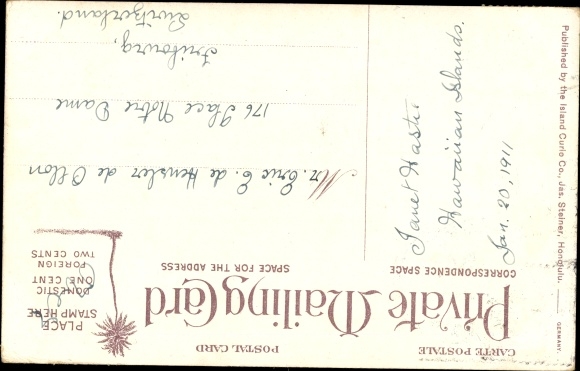 CARTE POSTALE
POSTAL CARD
Private Mailing Card
PLACE
STAMP HERE
DOMESTIC
ONE CENT
FOREIGN
TWO CENTS
CORRESPONDENCE SPACE
SPACE FOR THE ADDRESS
Janet Hastie
Hawaiian Islands.
Jan. 20, 1911
Mr. Eric C. de Hensler de Ollon
176 Place Notre Dame
Fribourg,
Switzerland.
Published by the Island Curio Co., Jas. Steiner, Honolulu.
GERMANY.